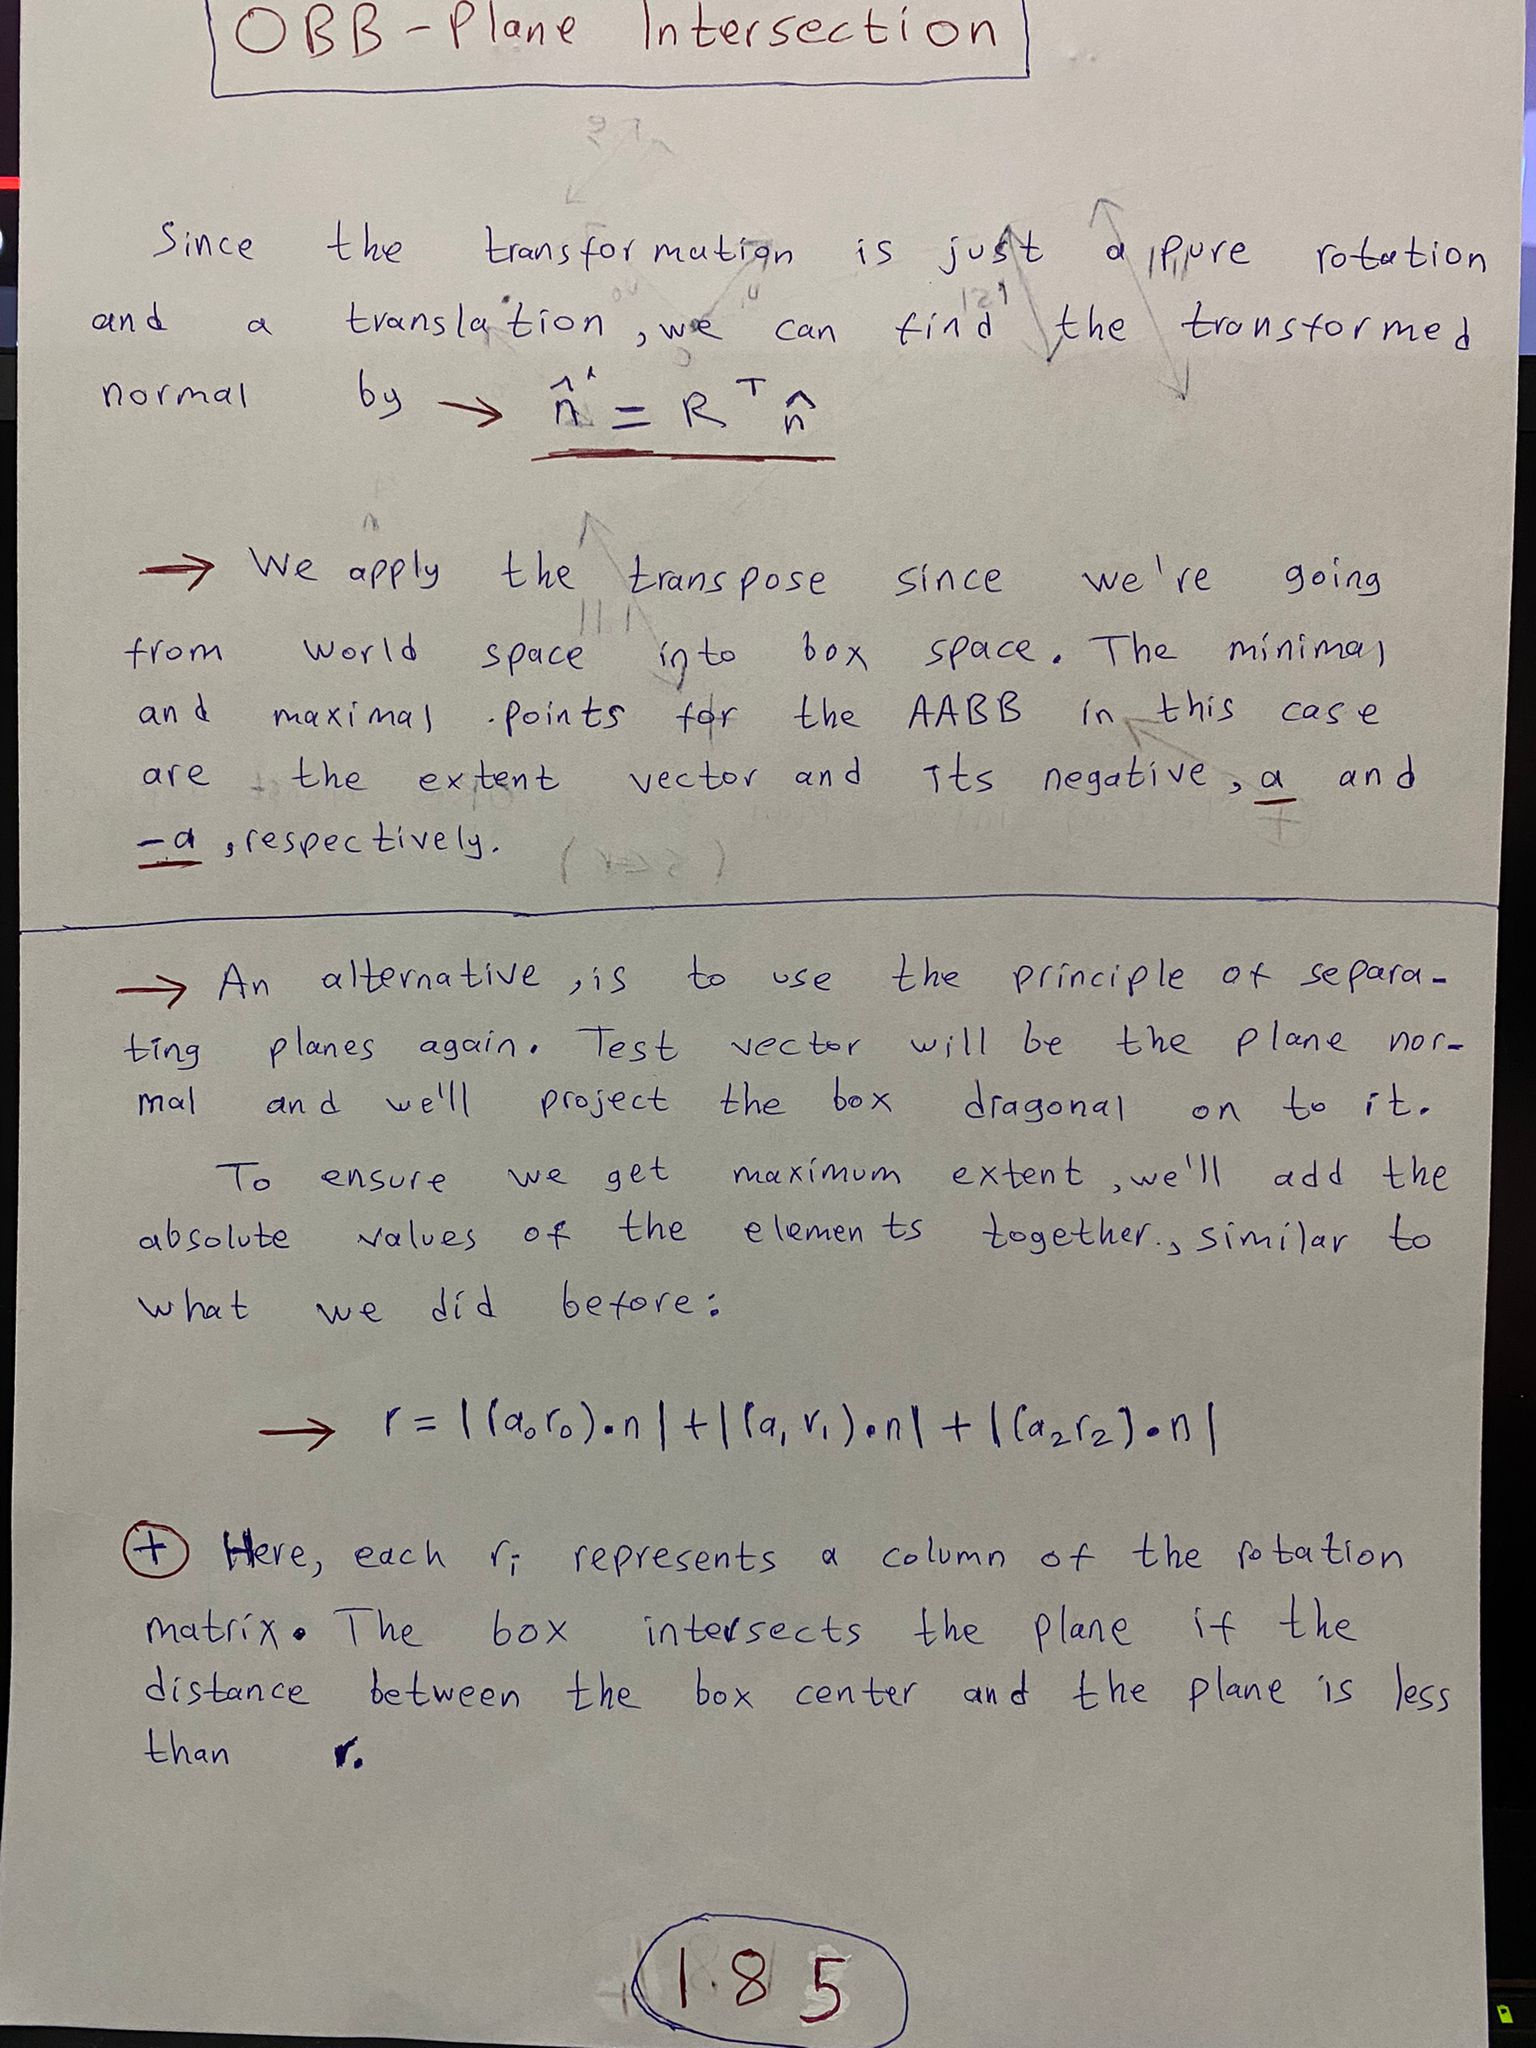 OBB - Plane Intersection
Since the transformation is just a pure rotation
and a translation, we can find the transformed
normal by → n̂' = R^T n̂
→ We apply the transpose since we're going
from world space into box space. The minimal
and maximal points for the AABB in this case
are the extent vector and its negative, a and
-a, respectively.
→ An alternative, is to use the principle of separa-
ting planes again. Test vector will be the plane nor-
mal and we'll project the box diagonal on to it.
To ensure we get maximum extent, we'll add the
absolute values of the elements together., similar to
what we did before:
→ r = |(a₀r₀)•n| + |(a₁r₁)•n| + |(a₂r₂)•n|
⊕ Here, each rᵢ represents a column of the rotation
matrix. The box intersects the plane if the
distance between the box center and the plane is less
than r.
185